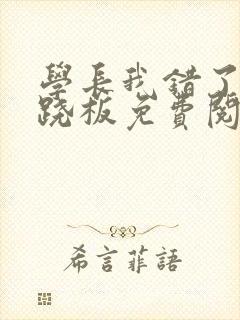 學長我錯了
跷板免費閱
希言菲語